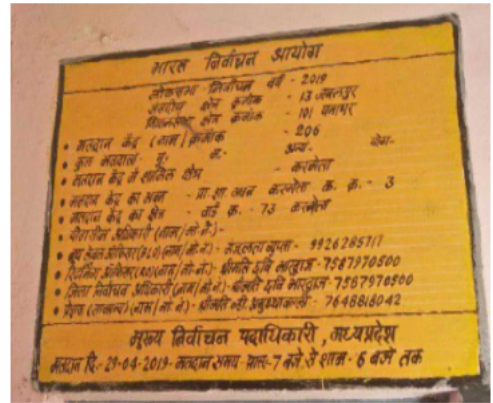 भारत निर्वाचन आयोग
लोकसभा निर्वाचन वर्ष - 2019
संसदीय क्षेत्र क्रमांक - 13 जबलपुर
विधानसभा क्षेत्र क्रमांक - 101 पनागर
• मतदान केंद्र (नाम/क्रमांक - 206
• कुल मतदाता - पु: म:- अन्य- योग-
• मतदान केंद्र में शामिल क्षेत्र - करमेता
• मतदान केंद्र का भवन - प्रा.शा.भवन करमेता क. क्र. - 3
• मतदान केंद्र का क्षेत्र - वार्ड क्र. - 73 करमेता
• पीठासीन अधिकारी (नाम/मो.नं.)-
• बूथ लेवल ऑफिसर (BLO) (नाम/मो.नं.)- गुप्ता - 9926285717
• रिटर्निंग ऑफिसर (RO) (नाम/मो.नं.)- श्रीमति छवि भारद्वाज - 7587970500
• जिला निर्वाचन अधिकारी (नाम/मो.नं.)- श्रीमति छवि भारद्वाज - 7587970500
• (नाम/मो.नं.)- श्रीमति - 7648818042
मुख्य निर्वाचन पदाधिकारी, मध्यप्रदेश
मतदान दि.- 29-04-2019- मतदान समय प्रातः-7 बजे से शाम- 6 बजे तक